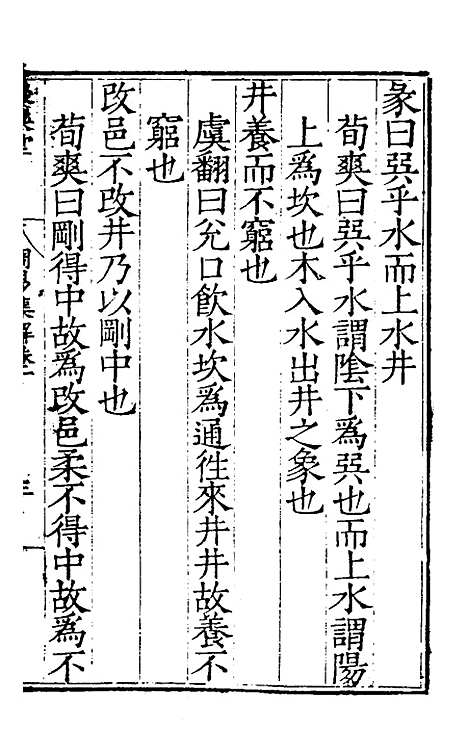 彖曰巽乎水而上水井
荀爽曰巽乎水謂陰下爲巽也而上水謂陽
上爲坎也木入水出井之象也
井養而不窮也
虞翻曰兊口飲水坎爲通徃來井井故養不
窮也
改邑不改井乃以剛中也
荀爽曰剛得中故爲改邑柔不得中故爲不